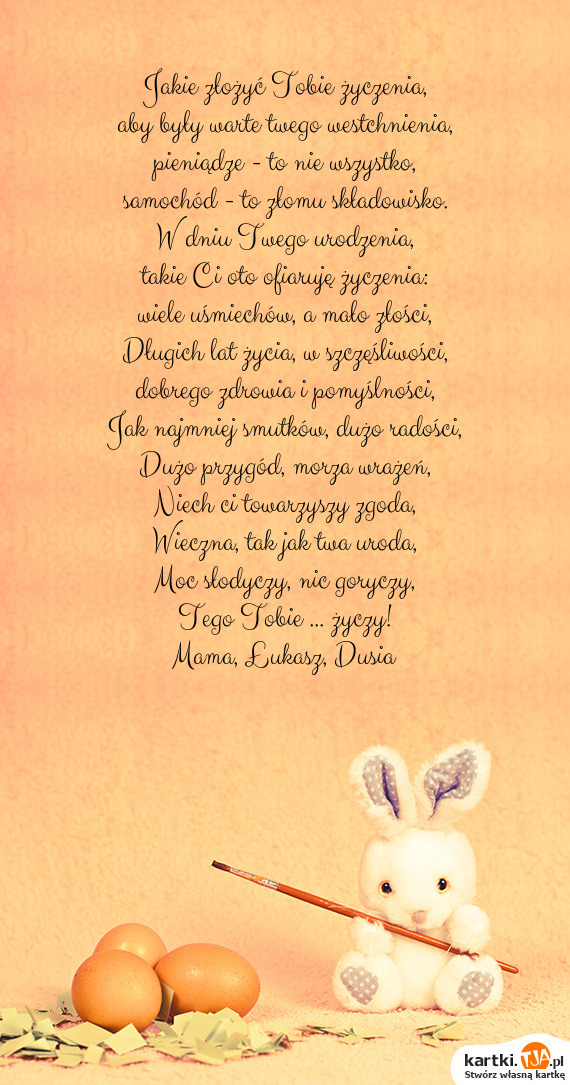 Jakie złożyć Tobie życzenia,
aby były warte twego westchnienia,
pieniądze - to nie wszystko,
samochód - to złomu składowisko.
W dniu Twego urodzenia,
takie Ci oto ofiaruję życzenia:
wiele uśmiechów, a mało złości,
Długich lat życia, w szczęśliwości,
dobrego zdrowia i pomyślności,
Jak najmniej smutków, dużo radości,
Dużo przygód, morza wrażeń,
Niech ci towarzyszy zgoda,
Wieczna, tak jak twa uroda,
Moc słodyczy, nic goryczy,
Tego Tobie ... życzy!
Mama, Łukasz, Dusia
kartki.TJA.pl
Stwórz własną kartkę